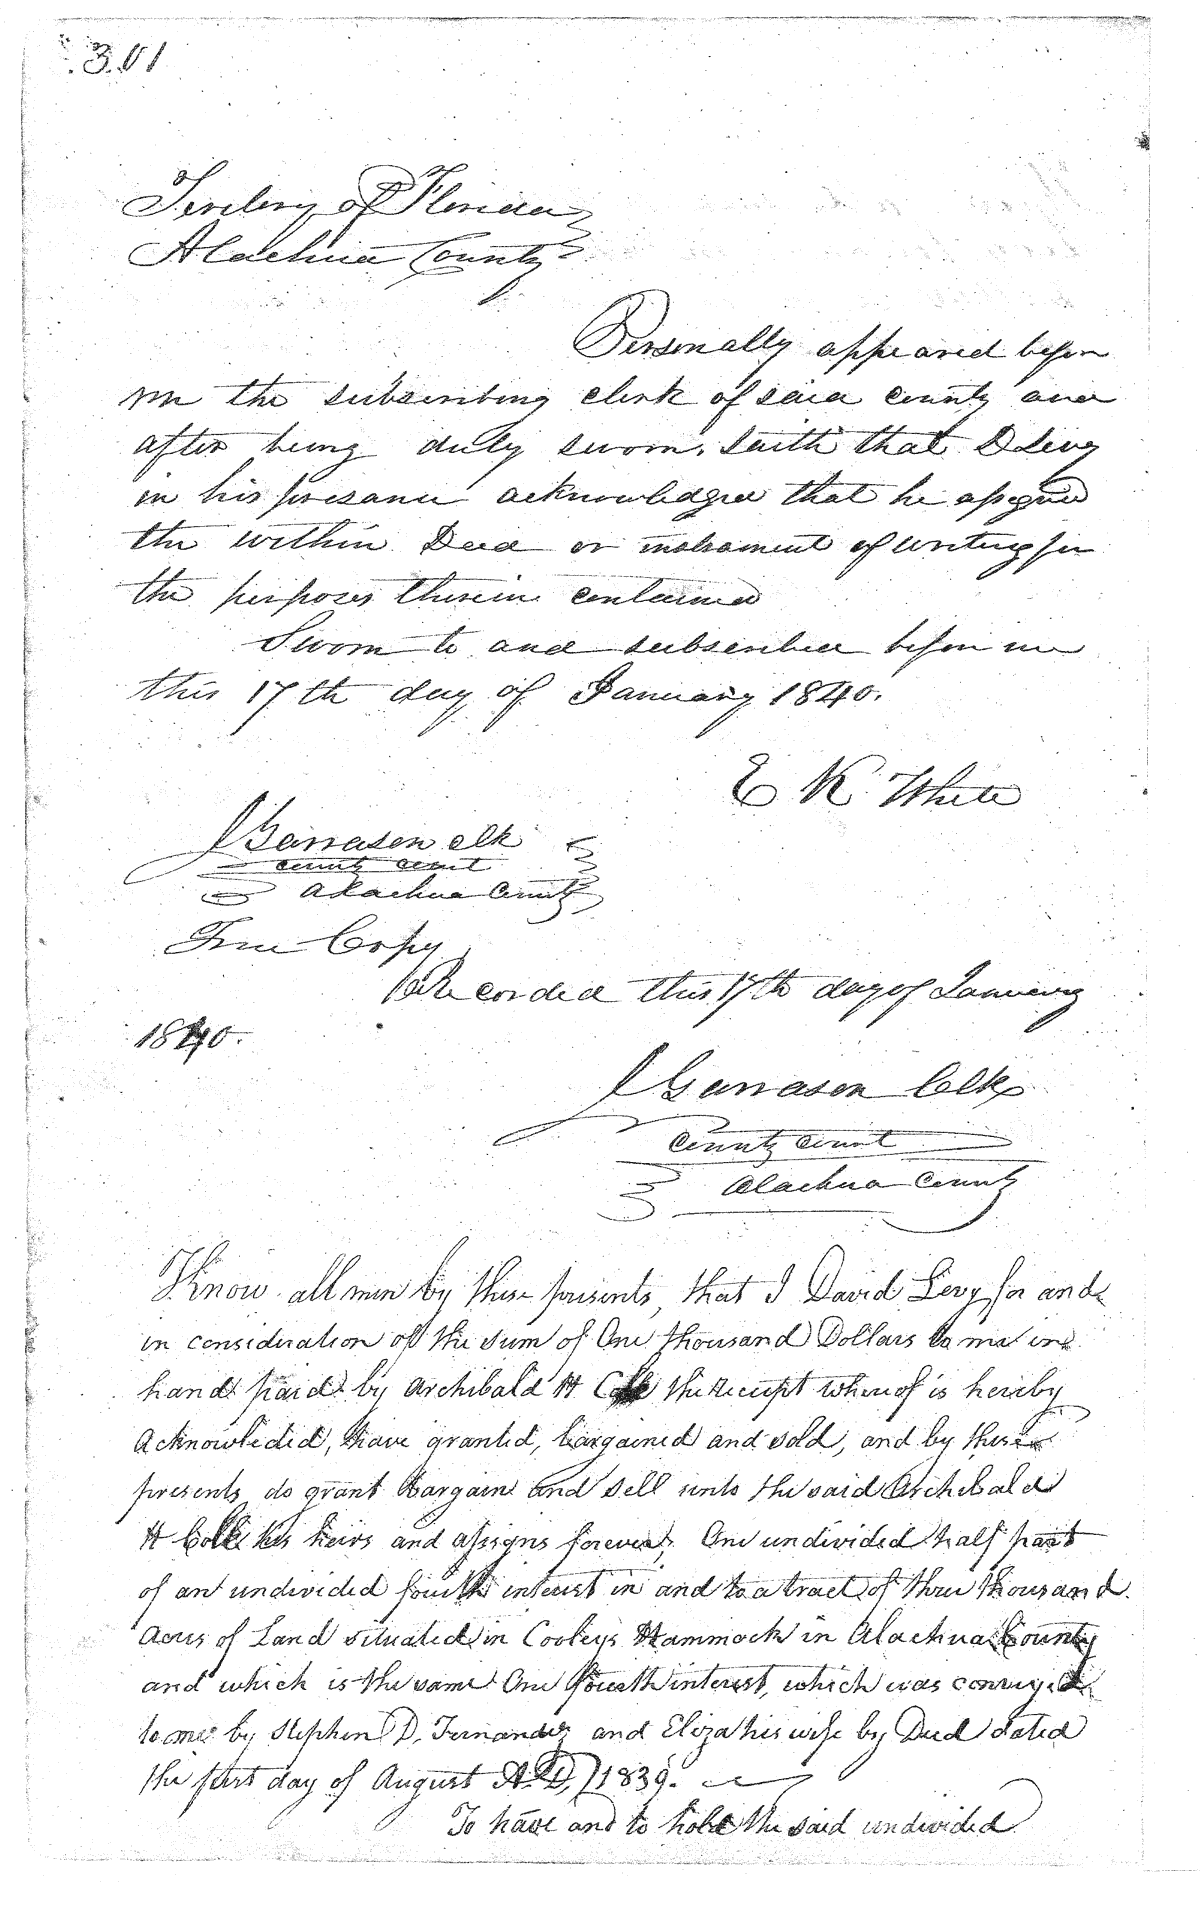 301
Teritory of Florida
Alachua County
Personally appeared before
me the subscribing clerk of said county and
after being duly sworn, saith that D Levy
in his presance acknowledged that he assigned
the within Deed or instrument of writing for
the perposes therein contained
Sworn to and subscribed before me
this 17th day of January 1840.
E K White
Garrason clk
county court
Alachua County
True Copy
Recorded this 17th day of January
1840.
Garrason Clk
County Court
Alachua County
Know all men by these presents, that I David Levy for and
in consideration of the sum of One thousand Dollars to me in
hand paid by Archibald H Cole the receipt whereof is hereby
Acknowledid, have granted, bargained and sold, and by these
presents do grant Bargain and Sell unto the said Archibald
H Cole his heirs and assigns forever, One undivided half part
of an undivided fourth interest in and to a tract of three thousand
Acres of Land situated in Cooleys Hammock in Alachua County
and which is the same One fourth interest, which was conveyed
to me by Stephen D. Fernandez and Eliza his wife by Deed dated
the first day of August A.D. 1839.
To have and to hold the said undivided